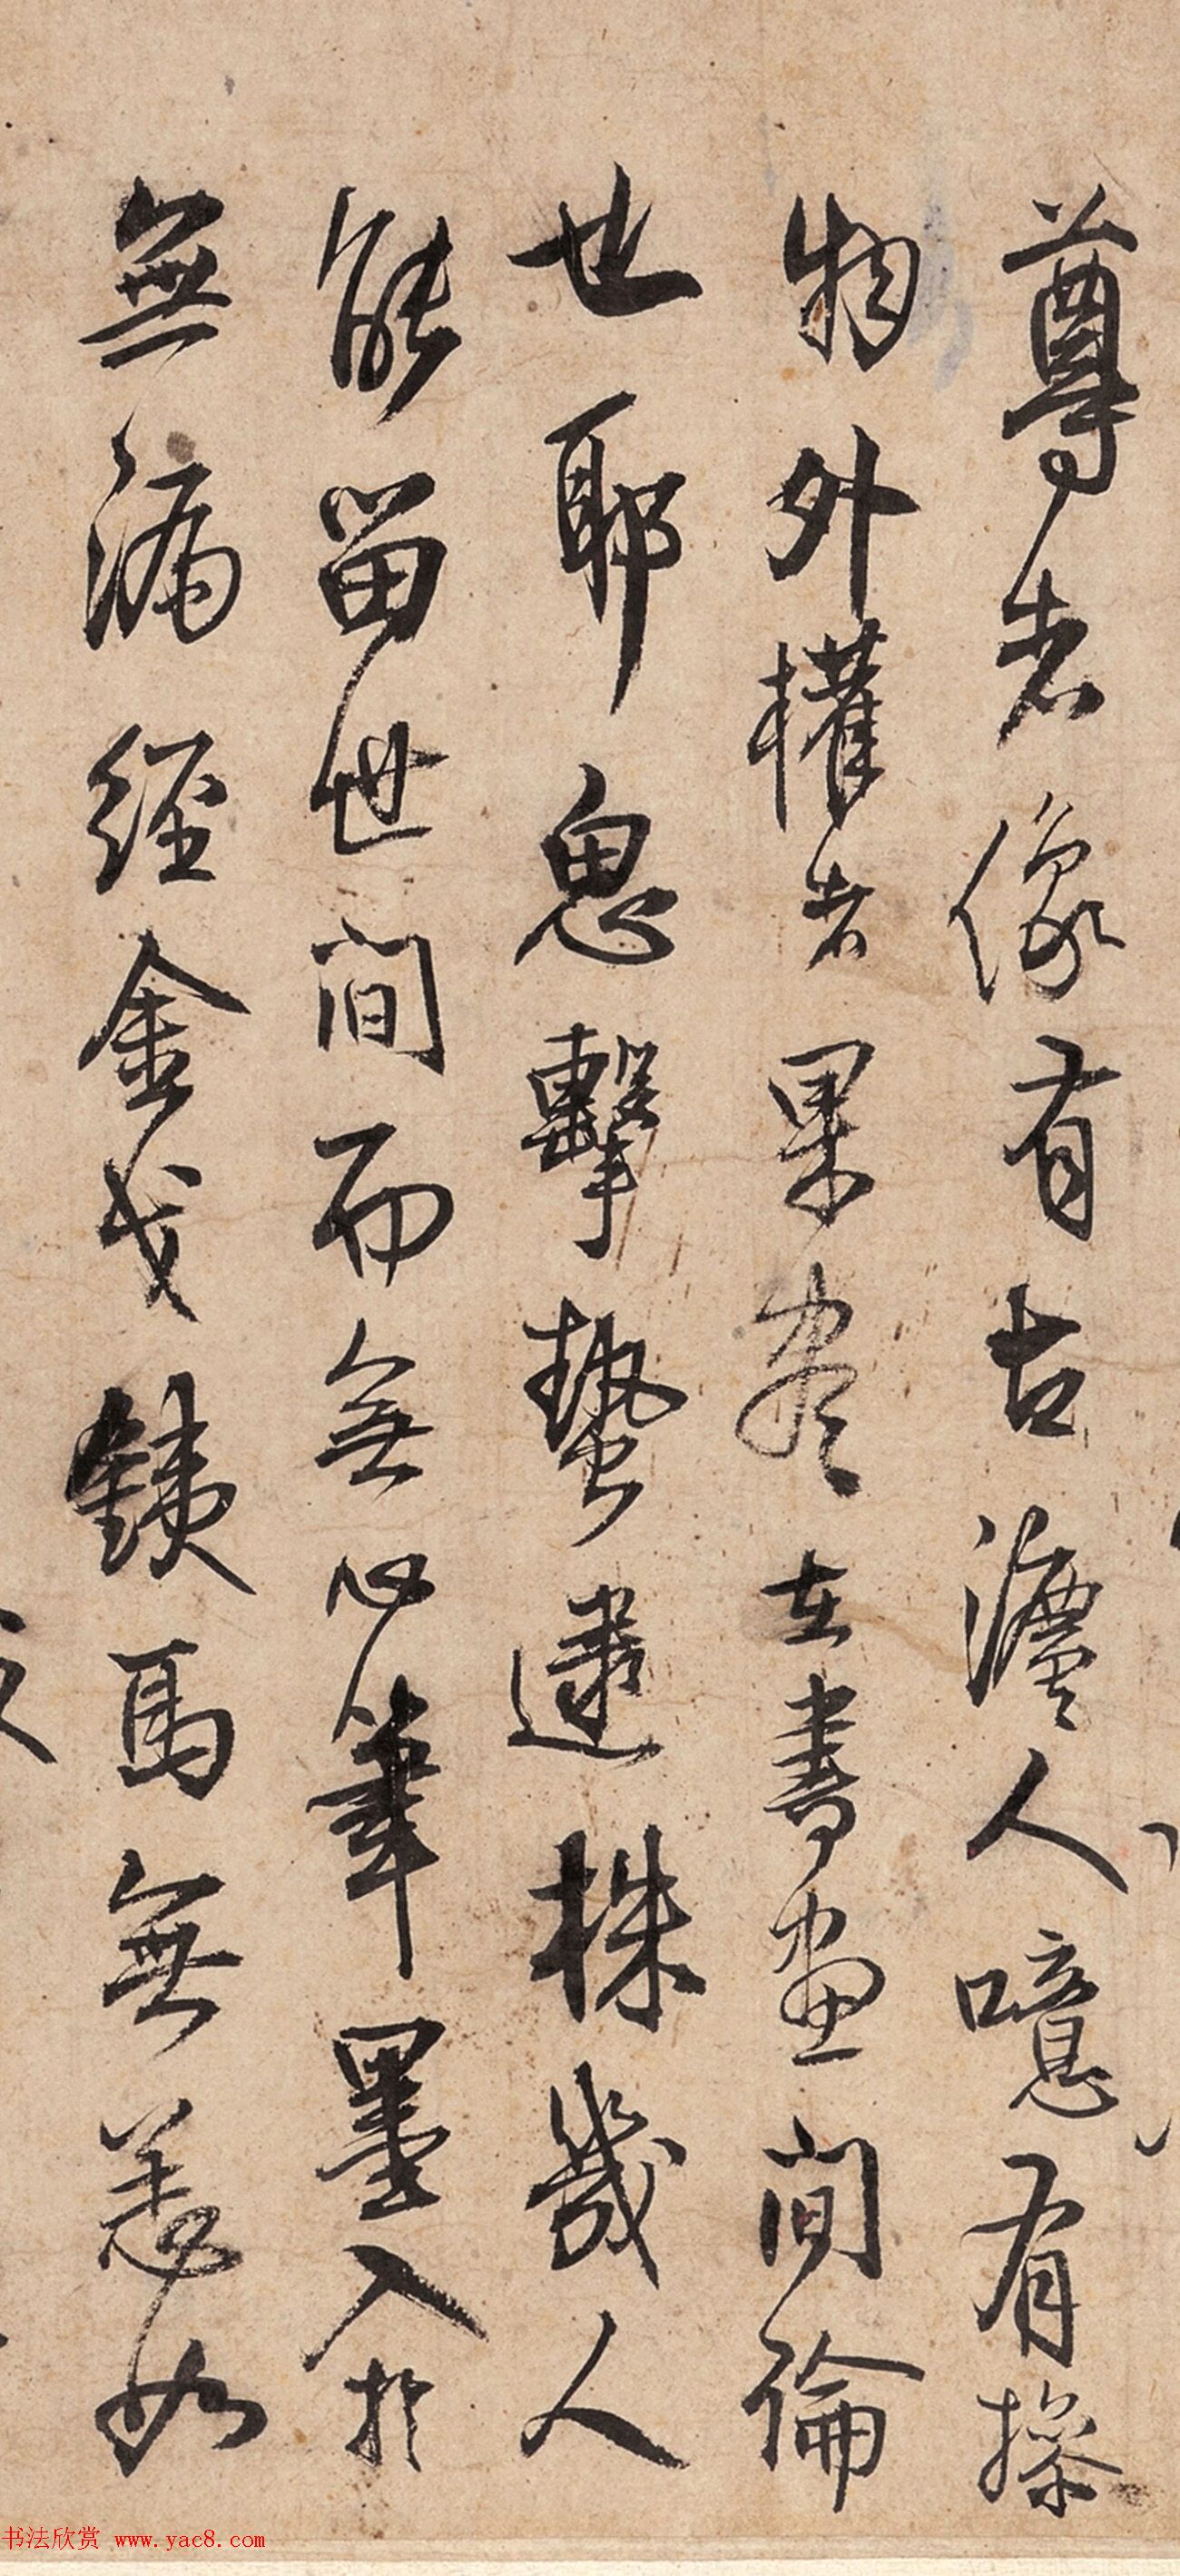 尊者像有古澹人噫有操
物外權者果盡在書畫間倫
世耶思擊蟄遽株幾人
能留世間而無心筆墨入於
無漏經金戈鐵馬無恙如
书法欣赏 www.yac8.com